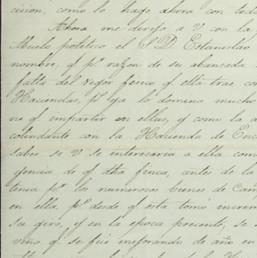 cision, como lo hago ahora con todo
Ahora me dirijo a V con la
Abuelo politico el S.r D. Estanislao
nombre, q.e p.r razon de su abansada
falta del regor fisico q.e ella trae con
Haciendas, p.s ya lo domina mucho
ne q.e impartir en ellas, y como la a
colindante con la Hacienda de Enc
saber se V se interesaria a ella com
gencia de q.e dha finca, antes de la
tenia p.r los numerosos bienes de Cam
en ella, p.s desde q.e esta tomó increm
su giro, y en la epoca presente, se
vimo q.e se fué mejorando de año en